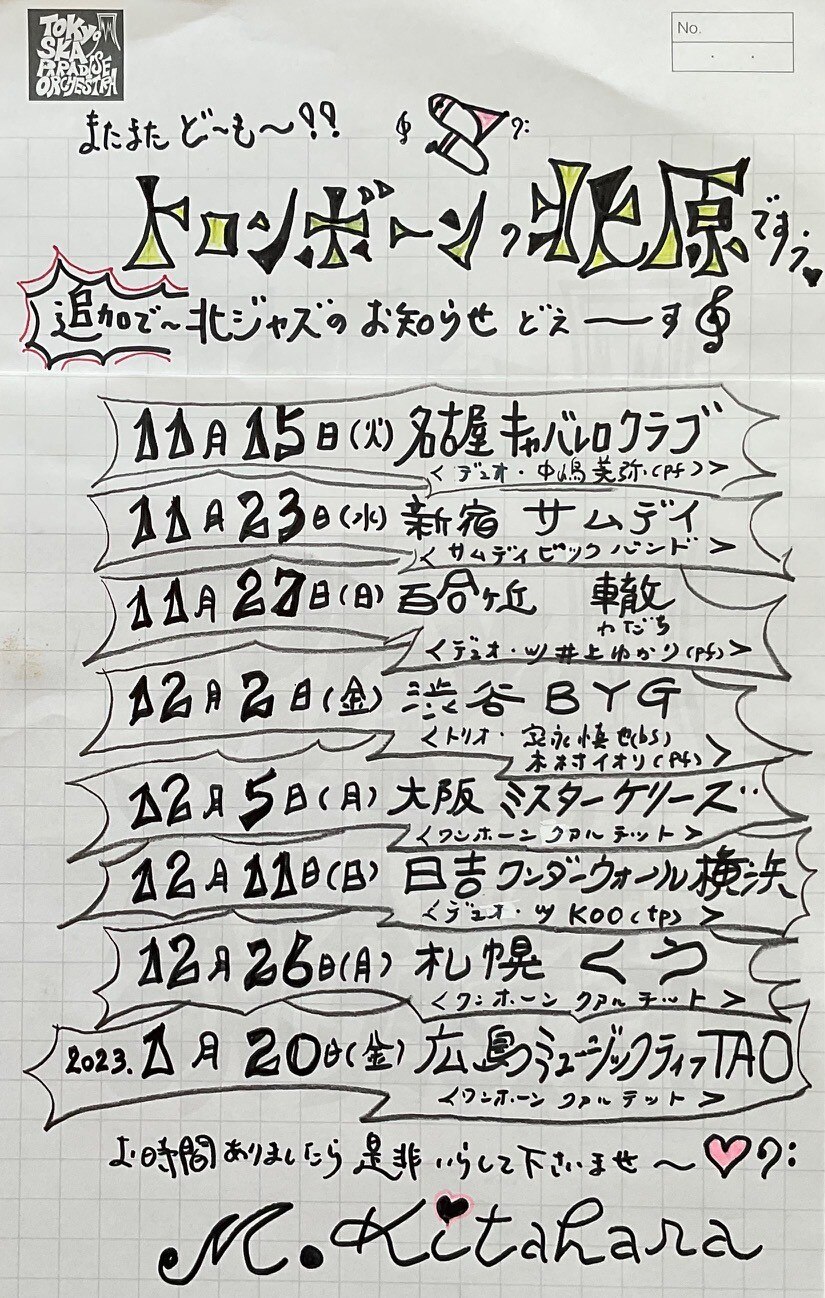 TOKYO
SKA
PARADISE
ORCHESTRA
No.
またまた ど〜も〜!!
トロンボーンの北原です。
追加で〜北ジャズの お知らせ どえーーす
11月15日(火) 名古屋 キャバレロクラブ
<デュオ・中嶋美弥(pf)>
11月23日(水) 新宿 サムデイ
<サムデイビックバンド>
11月27日(日) 百合ヶ丘 轍
わだち
<デュオ・W/井上ゆかり(pf)>
12月2日(金) 渋谷 BYG
<トリオ・ 永慎也(bs)
木村イオリ(pf)>
12月5日(月) 大阪 ミスターケリーズ
<ワンホーン クァルテット>
12月11日(日) 日吉 ワンダーウォール横浜
<デュオ・W KOO(tp)>
12月26日(月) 札幌 くう
<ワンホーン クァルテット>
2023.1月20日(金) 広島ミュージックティフTAO
<ワンホーン クァルテット>
お時間ありましたら 是非 いらして下さいませ〜
M.Kitahara